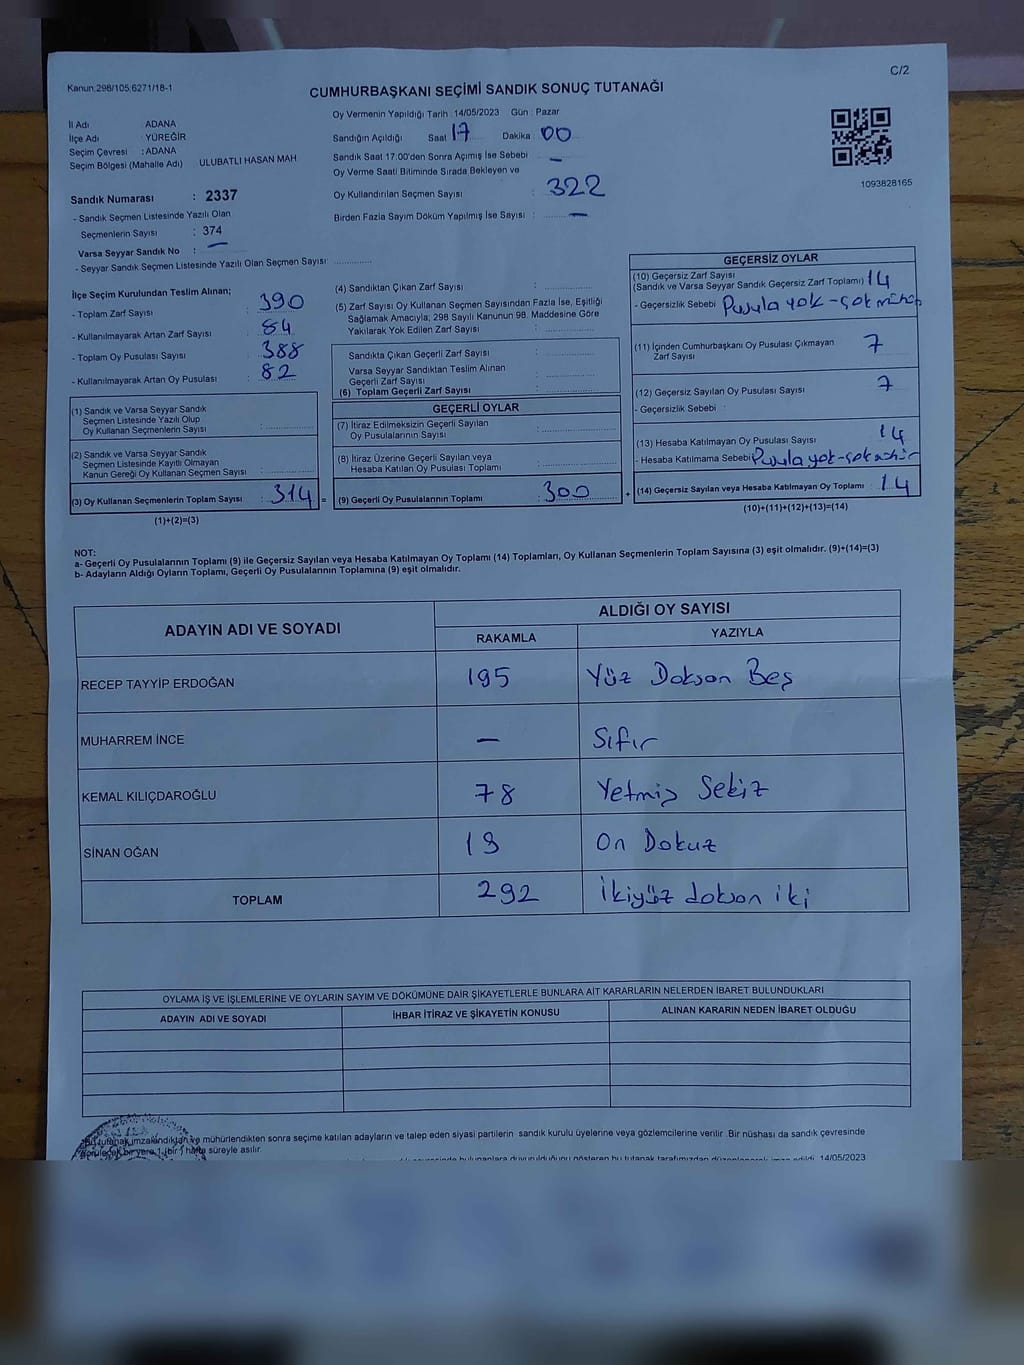 C/2
Kanun:298/105,6271/18-1
CUMHURBAŞKANI SEÇİMİ SANDIK SONUÇ TUTANAĞI
İl Adı ADANA
İlçe Adı : YÜREĞİR
Seçim Çevresi : ADANA
Seçim Bölgesi (Mahalle Adı) ULUBATLI HASAN MAH
Sandık Numarası : 2337
- Sandık Seçmen Listesinde Yazılı Olan
Seçmenlerin Sayısı : 374
Varsa Seyyar Sandık No : –
- Seyyar Sandık Seçmen Listesinde Yazılı Olan Seçmen Sayısı: ..............
Oy Vermenin Yapıldığı Tarih : 14/05/2023 Gün : Pazar
Sandığın Açıldığı Saat 17 Dakika 00
Sandık Saat 17:00'den Sonra Açımış İse Sebebi –
Oy Verme Saati Bitiminde Sırada Bekleyen ve
Oy Kullandırılan Seçmen Sayısı : 322
Birden Fazla Sayım Döküm Yapılmış İse Sayısı : –
1093828165
İlçe Seçim Kurulundan Teslim Alınan;
- Toplam Zarf Sayısı : 390
- Kullanılmayarak Artan Zarf Sayısı : 84
- Toplam Oy Pusulası Sayısı : 388
- Kullanılmayarak Artan Oy Pusulası : 82
(1) Sandık ve Varsa Seyyar Sandık
Seçmen Listesinde Yazılı Olup
Oy Kullanan Seçmenlerin Sayısı :
(2) Sandık ve Varsa Seyyar Sandık
Seçmen Listesinde Kayıtlı Olmayan
Kanun Gereği Oy Kullanan Seçmen Sayısı :
(3) Oy Kullanan Seçmenlerin Toplam Sayısı : 314 =
(1)+(2)=(3)
(4) Sandıktan Çıkan Zarf Sayısı :
(5) Zarf Sayısı Oy Kullanan Seçmen Sayısından Fazla İse, Eşitliği
Sağlamak Amacıyla; 298 Sayılı Kanunun 98. Maddesine Göre
Yakılarak Yok Edilen Zarf Sayısı :
Sandıkta Çıkan Geçerli Zarf Sayısı :
Varsa Seyyar Sandıktan Teslim Alınan
Geçerli Zarf Sayısı :
(6) Toplam Geçerli Zarf Sayısı :
GEÇERLİ OYLAR
(7) İtiraz Edilmeksizin Geçerli Sayılan
Oy Pusulalarının Sayısı :
(8) İtiraz Üzerine Geçerli Sayılan veya
Hesaba Katılan Oy Pusulası Toplamı :
(9) Geçerli Oy Pusulalarının Toplamı : 300 +
GEÇERSİZ OYLAR
(10) Geçersiz Zarf Sayısı
(Sandık ve Varsa Seyyar Sandık Geçersiz Zarf Toplamı) 14
- Geçersizlik Sebebi : Pusula yok - çok mühür
(11) İçinden Cumhurbaşkanı Oy Pusulası Çıkmayan
Zarf Sayısı 7
(12) Geçersiz Sayılan Oy Pusulası Sayısı : 7
- Geçersizlik Sebebi :
(13) Hesaba Katılmayan Oy Pusulası Sayısı 14
- Hesaba Katılmama Sebebi Pusula yok - çok mühür
(14) Geçersiz Sayılan veya Hesaba Katılmayan Oy Toplamı : 14
(10)+(11)+(12)+(13)=(14)
NOT:
a- Geçerli Oy Pusulalarının Toplamı (9) ile Geçersiz Sayılan veya Hesaba Katılmayan Oy Toplamı (14) Toplamları, Oy Kullanan Seçmenlerin Toplam Sayısına (3) eşit olmalıdır. (9)+(14)=(3)
b- Adayların Aldığı Oyların Toplamı, Geçerli Oy Pusulalarının Toplamına (9) eşit olmalıdır.
ADAYIN ADI VE SOYADI ALDIĞI OY SAYISI
RAKAMLA YAZIYLA
RECEP TAYYİP ERDOĞAN 195 Yüz Doksan Beş
MUHARREM İNCE – Sıfır
KEMAL KILIÇDAROĞLU 78 Yetmiş Sekiz
SİNAN OĞAN 19 On Dokuz
TOPLAM 292 İkiyüz doksan iki
OYLAMA İŞ VE İŞLEMLERİNE VE OYLARIN SAYIM VE DÖKÜMÜNE DAİR ŞİKAYETLERLE BUNLARA AİT KARARLARIN NELERDEN İBARET BULUNDUKLARI
ADAYIN ADI VE SOYADI İHBAR İTİRAZ VE ŞİKAYETİN KONUSU ALINAN KARARIN NEDEN İBARET OLDUĞU
Bu tutanak imzalandıktan ve mühürlendikten sonra seçime katılan adayların ve talep eden siyasi partilerin sandık kurulu üyelerine veya gözlemcilerine verilir. Bir nüshası da sandık çevresinde
görülecek bir yere 1 (bir) hafta süreyle asılır.
14/05/2023